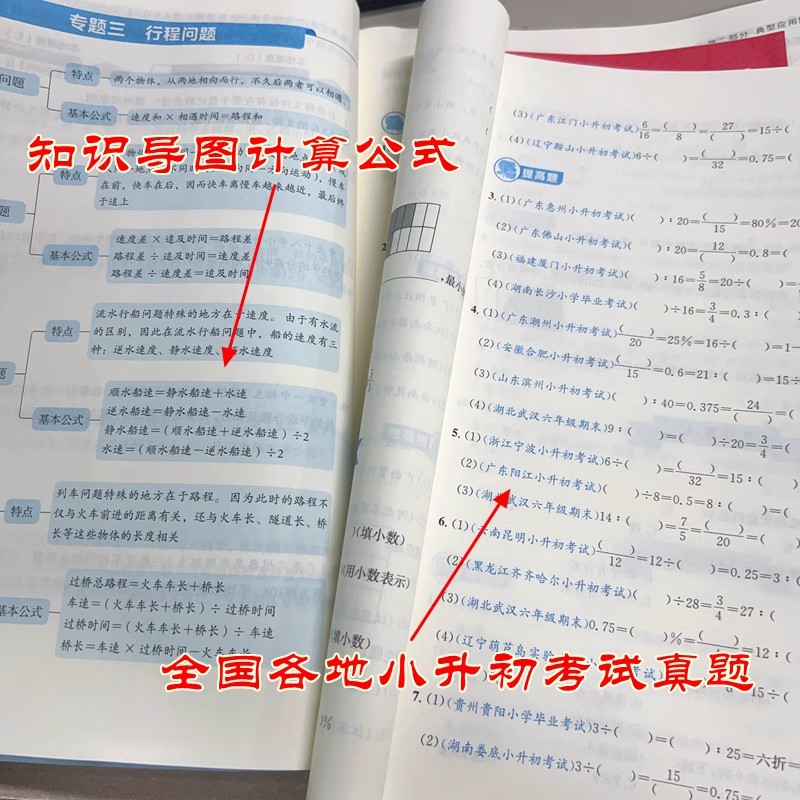 专题三 行程问题
问题
特点
两个物体，从两地相向而行，不久后两者可以相遇。
基本公式
速度和×相遇时间=路程和
知识导图计算公式
特点
在前，快车在后，因而快车离慢车越来越近，最后终
于追上
题
基本公式
速度差×追及时间=路程差
路程差÷追及时间=速度差
路程差÷速度差=追及时间
特点
流水行船问题特殊的地方在于速度。由于有水流
的区别，因此在流水行船问题中，船的速度有三
种：逆水速度、静水速度、顺水速度
题
基本公式
顺水船速=静水船速+水速
逆水船速=静水船速-水速
静水船速=（顺水船速+逆水船速）÷2
水速=（顺水船速-逆水船速）÷2
特点
列车问题特殊的地方在于路程。因为此时的路程不
仅与火车前进的距离有关，还与火车长、隧道长、桥
长等这些物体的长度相关
基本公式
过桥总路程=火车车长+桥长
车速=（火车车长+桥长）÷过桥时间
过桥时间=（火车车长+桥长）÷车速
桥长=车速×过桥时间-火车车长
2
,最小
)(填小数)
(用小数表示)
填小数)
)%
典型应用
(3)(广东江门小升初考试)6/16=( )/8=27/( )=15÷(
(4)(辽宁鞍山小升初考试)6÷( )=( )/32=0.75=(
提高题
3.(1)(广东惠州小升初考试)( ):20=( )/15=80%=20
(2)(广东佛山小升初考试)( ):20=12/( )=0.8=(
(3)(福建厦门小升初考试)( ):16=5/8=20÷(
(4)(湖南长沙小学毕业考试)( )÷16=3/4=0.3:(
4.(1)(广东潮州小升初考试)( )/20=25%=16÷( )=1
(2)(安徽合肥小升初考试)( )/15=0.6=21:( )=15÷
(3)(山东滨州小升初考试)( ):40=0.375=24/( )=
(4)(湖北武汉六年级期末)9:( )=( )÷20=3/4=(
5.(1)(浙江宁波小升初考试)6÷( )=( )/32=15:(
(2)(广东阳江小升初考试)( )÷8=0.5=8:( )=
(3)(湖北武汉六年级期末)14:( )=7/5=( )/20=(
6.(1)(云南昆明小升初考试)( )/12=12÷( )=0.25=3:(
(2)(黑龙江齐齐哈尔小升初考试)( )÷28=3/4=27:(
(3)(湖北武汉六年级期末)0.75=( )%=( )/4=12:(
(4)(辽宁葫芦岛实验
全国各地小升初考试真题
7.(1)(贵州贵阳小学毕业考试)3÷( )=( ):25=六折=
(2)(湖南娄底小升初考试)3÷( )=15/( )=0.75=(